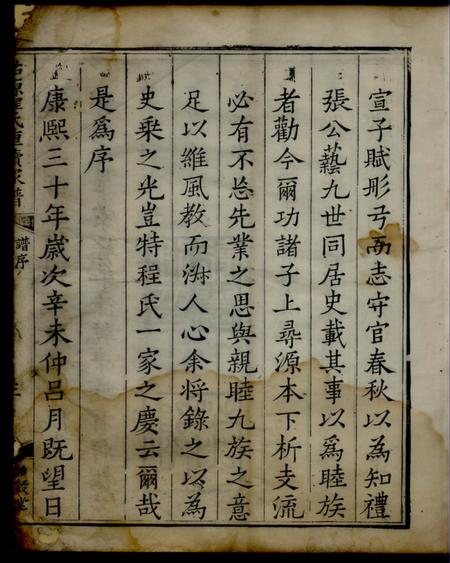 宣子賦彤弓而志守官春秋以為知禮
張公藝九世同居史載其事以為睦族
者勸今爾功諸子上尋源本下析支流
必有不忘先業之思與親睦九族之意
足以維風教而淑人心余將錄之以為
史乘之光豈特程氏一家之慶云爾哉
是為序
康熙三十年歲次辛未仲呂月既望日
程氏重續家譜
譜序